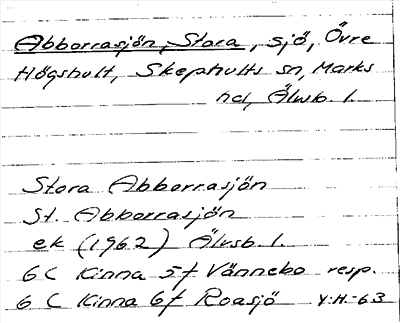 Abborrasjön, Stora, sjö, Övre
Högshult, Skephults sn, Marks
hd, Älvsb. l.
Stora Abborrasjön
St. Abborrasjön
ek (1962) Älvsb. l.
6 C Kinna 5f Vännebo resp.
6 C Kinna 6f Roasjö Y.H.-63